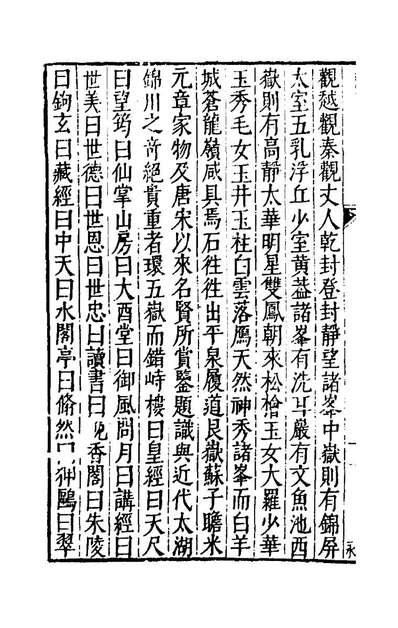 觀越觀秦觀丈人乾封登封靜望諸峯中嶽則有錦屏
太室五乳浮丘少室黃葢諸峯有洗耳巖有文魚池西
嶽則有高靜太華明星雙鳳朝來松檜玉女大羅少華
玉秀毛女玉井玉柱白雲落鴈天然神秀諸峯而白羊
城蒼龍嶺咸具焉石徃徃出平泉履道艮嶽蘇子瞻米
元章家物及唐宋以來名賢所賞鑒題識與近代太湖
錦川之竒絕貴重者環五嶽而錯峙樓曰皇經曰天尺
曰望筠曰仙掌山房曰大酉堂曰御風問月曰講經曰
世美曰世德曰世恩曰世忠曰讀書曰香閣曰朱陵
曰鉤玄曰藏經曰中天曰水閣亭曰翛然曰狎鷗曰翠